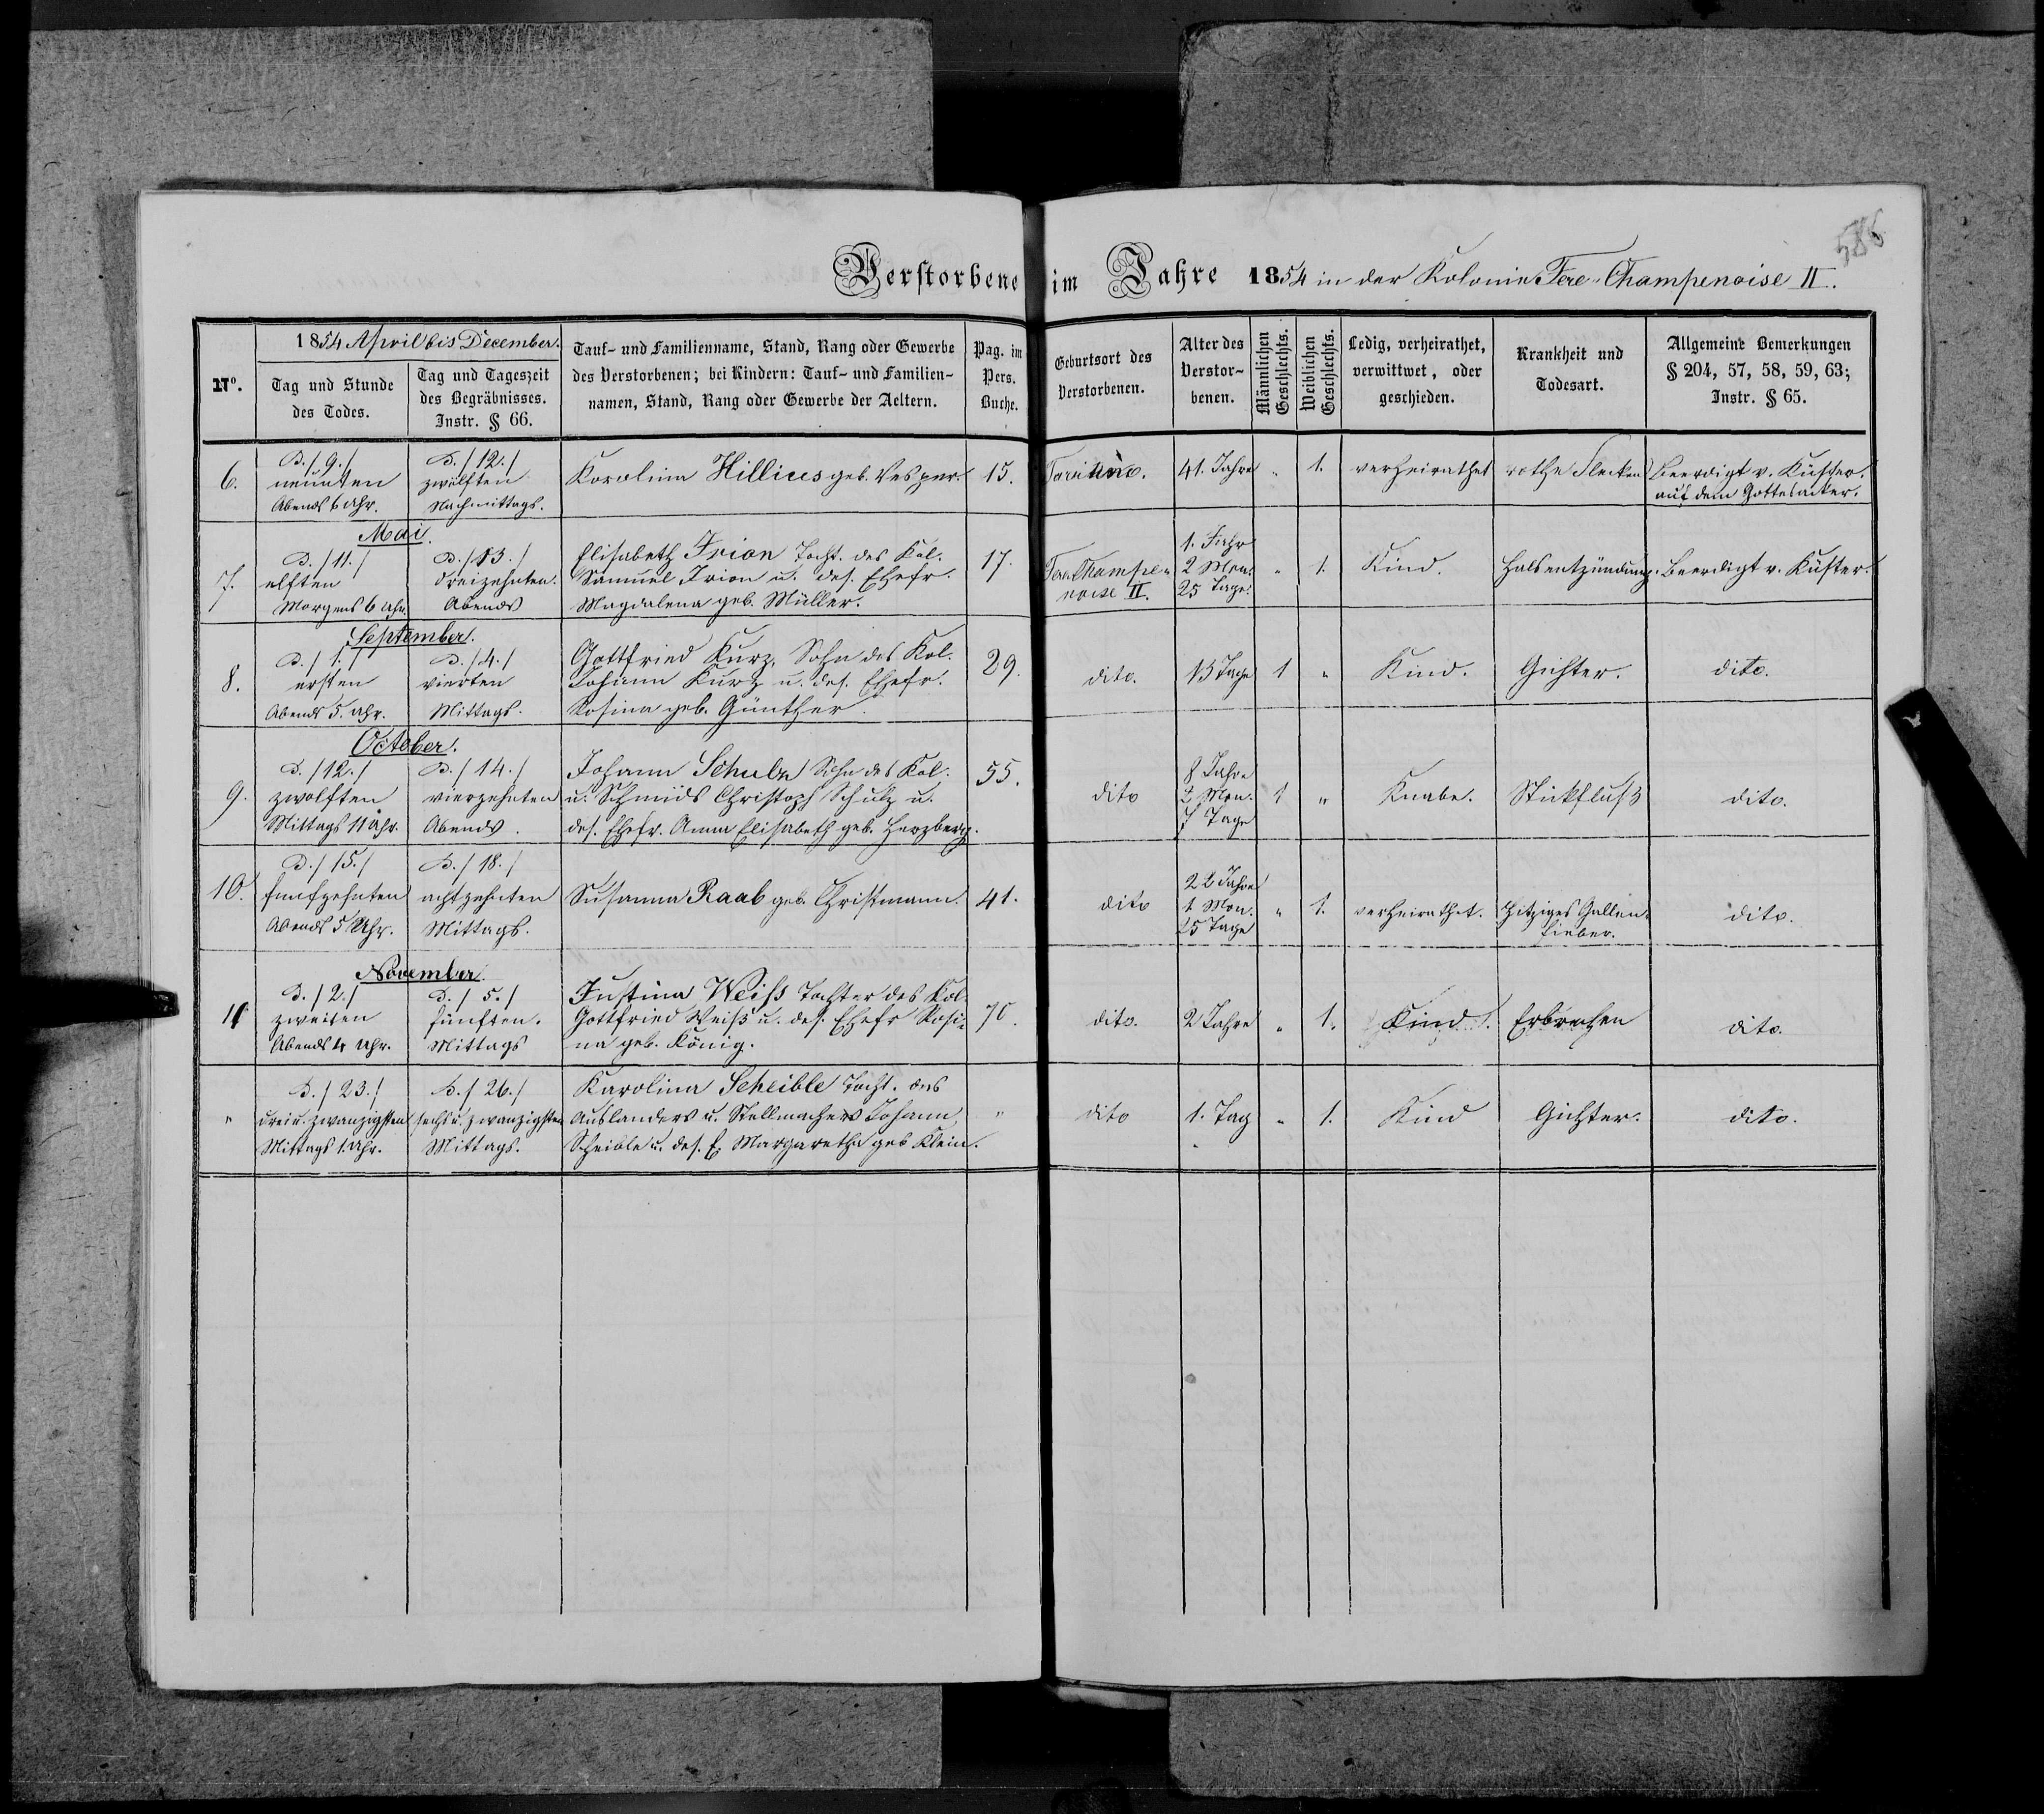 586
Verstorbene im Jahre 1854 in der Kolonie Fere-Champenoise II.
1854 April bis December.
No.
Tag und Stunde
des Todes.
Tag und Tageszeit
des Begräbnisses.
Instr. § 66.
Tauf- und Familienname, Stand, Rang oder Gewerbe
des Verstorbenen; bei Kindern: Tauf- und Familien-
namen, Stand, Rang oder Gewerbe der Aeltern.
Pag. im
Pers.
Buche.
Geburtsort des
Verstorbenen.
Alter des
Verstor-
benen.
Männlichen
Geschlechts.
Weiblichen
Geschlechts.
Ledig, verheirathet,
verwittwet, oder
geschieden.
Krankheit und
Todesart.
Allgemeine Bemerkungen
§ 204, 57, 58, 59, 63;
Instr. § 65.
6.
D. /9./
neunten
Abends 6 Uhr.
D. /12./
zwölften
Nachmittags.
Karolina Hillius geb. Vesper.
15.
41. Jahre
"
1.
verheirathet
rothe Flecken
Beerdigt v. Küster.
auf dem Gottesacker.
Mai.
7.
D. /11./
elften
Morgens 6 Uhr.
D. /13./
dreizehnten.
Abends
Elisabeth Irion Tocht. des Kol.
Samuel Irion u. des. Ehefr.
Magdalena geb. Müller.
17.
Fere Champe-
noise II.
1. Jahr
2 Mon.
25 Tage.
"
1.
Kind.
Halsentzündung.
Beerdigt v. Küster.
September.
8.
D. /1./
ersten
Abends 5. Uhr.
D. /4./
vierten
Mittags.
Gottfried Kurz, Sohn des Kol.
Johann Kurz u. des. Ehefr.
Rosina geb. Günther.
29.
dito.
13 Tage
1
"
Kind.
Gichter.
dito.
October.
9.
D. /12./
zwölften
Mittags 11 Uhr.
D. /14./
vierzehnten
Abends.
Johann Schulz Sohn des Kol.
u. Schmids Christoph Schulz u.
des. Ehefr. Anna Elisabeth geb. Herzberg.
55.
dito
8 Jahre
2 Mon.
7 Tage
1
"
Knabe.
Stickfluß
dito.
10.
D. /15./
funfzehnten
Abends 5 Uhr.
D. /18./
achtzehnten
Mittags.
Susanna Raab geb. Christmann.
41.
dito
22 Jahre
1 Mon.
25 Tage
"
1.
verheirathet.
hitziges Gallen-
fieber.
dito.
November.
11
D. /2./
zweiten
Abends 4 Uhr.
D. /5./
fünften.
Mittags
Justina Weiß Tochter des Kol.
Gottfried Weiß u. des. Ehefr Rosi-
na geb. König.
70.
dito.
2 Jahre
"
1.
Kind.
Erbrechen
dito.
"
D. /23./
drei u. zwanzigsten
Mittags 1. Uhr.
D. /26./
sechs u. zwanzigsten
Mittags.
Karolina Scheible Tocht. des
Auslanders u. Stellmachers Johann
Scheible u. des. E. Margaretha geb Klein.
"
dito
1. Tag
"
1.
Kind
Gichter.
dito.